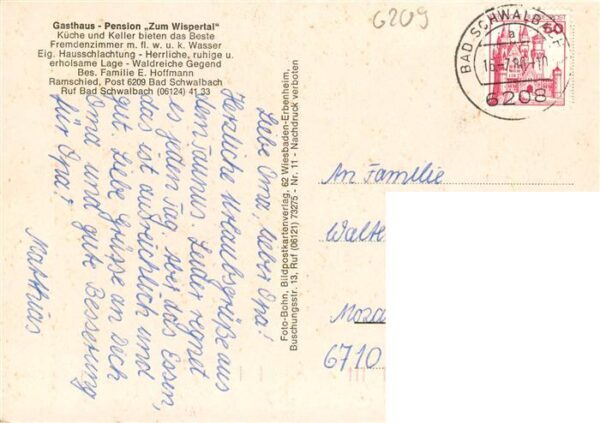 Gasthaus - Pension „Zum Wispertal"
Küche und Keller bieten das Beste
Fremdenzimmer m. fl. w. u. k. Wasser
Eig. Hausschlachtung - Herrliche, ruhige u.
erholsame Lage - Waldreiche Gegend
Bes. Familie E. Hoffmann
Ramschied, Post 6209 Bad Schwalbach
Ruf Bad Schwalbach (06124) 41 33
6209
BAD SCHWALBACH
a
6208
60
Liebe Oma, lieber Opa!
Herzliche Urlaubsgrüße aus
dem Taunus. Leider regnet
es jeden Tag, aber das Essen,
das ist ausreichlich und
gut. Liebe Grüße an Dich
Oma und gute Besserung
für Opa!
Matthias
Foto-Bohn, Bildpostkartenverlag, 62 Wiesbaden-Erbenheim,
Buschungsstr. 13, Ruf (06121) 73275 - Nr. 11 - Nachdruck verboten
An Familie
Walte
Moza
6710